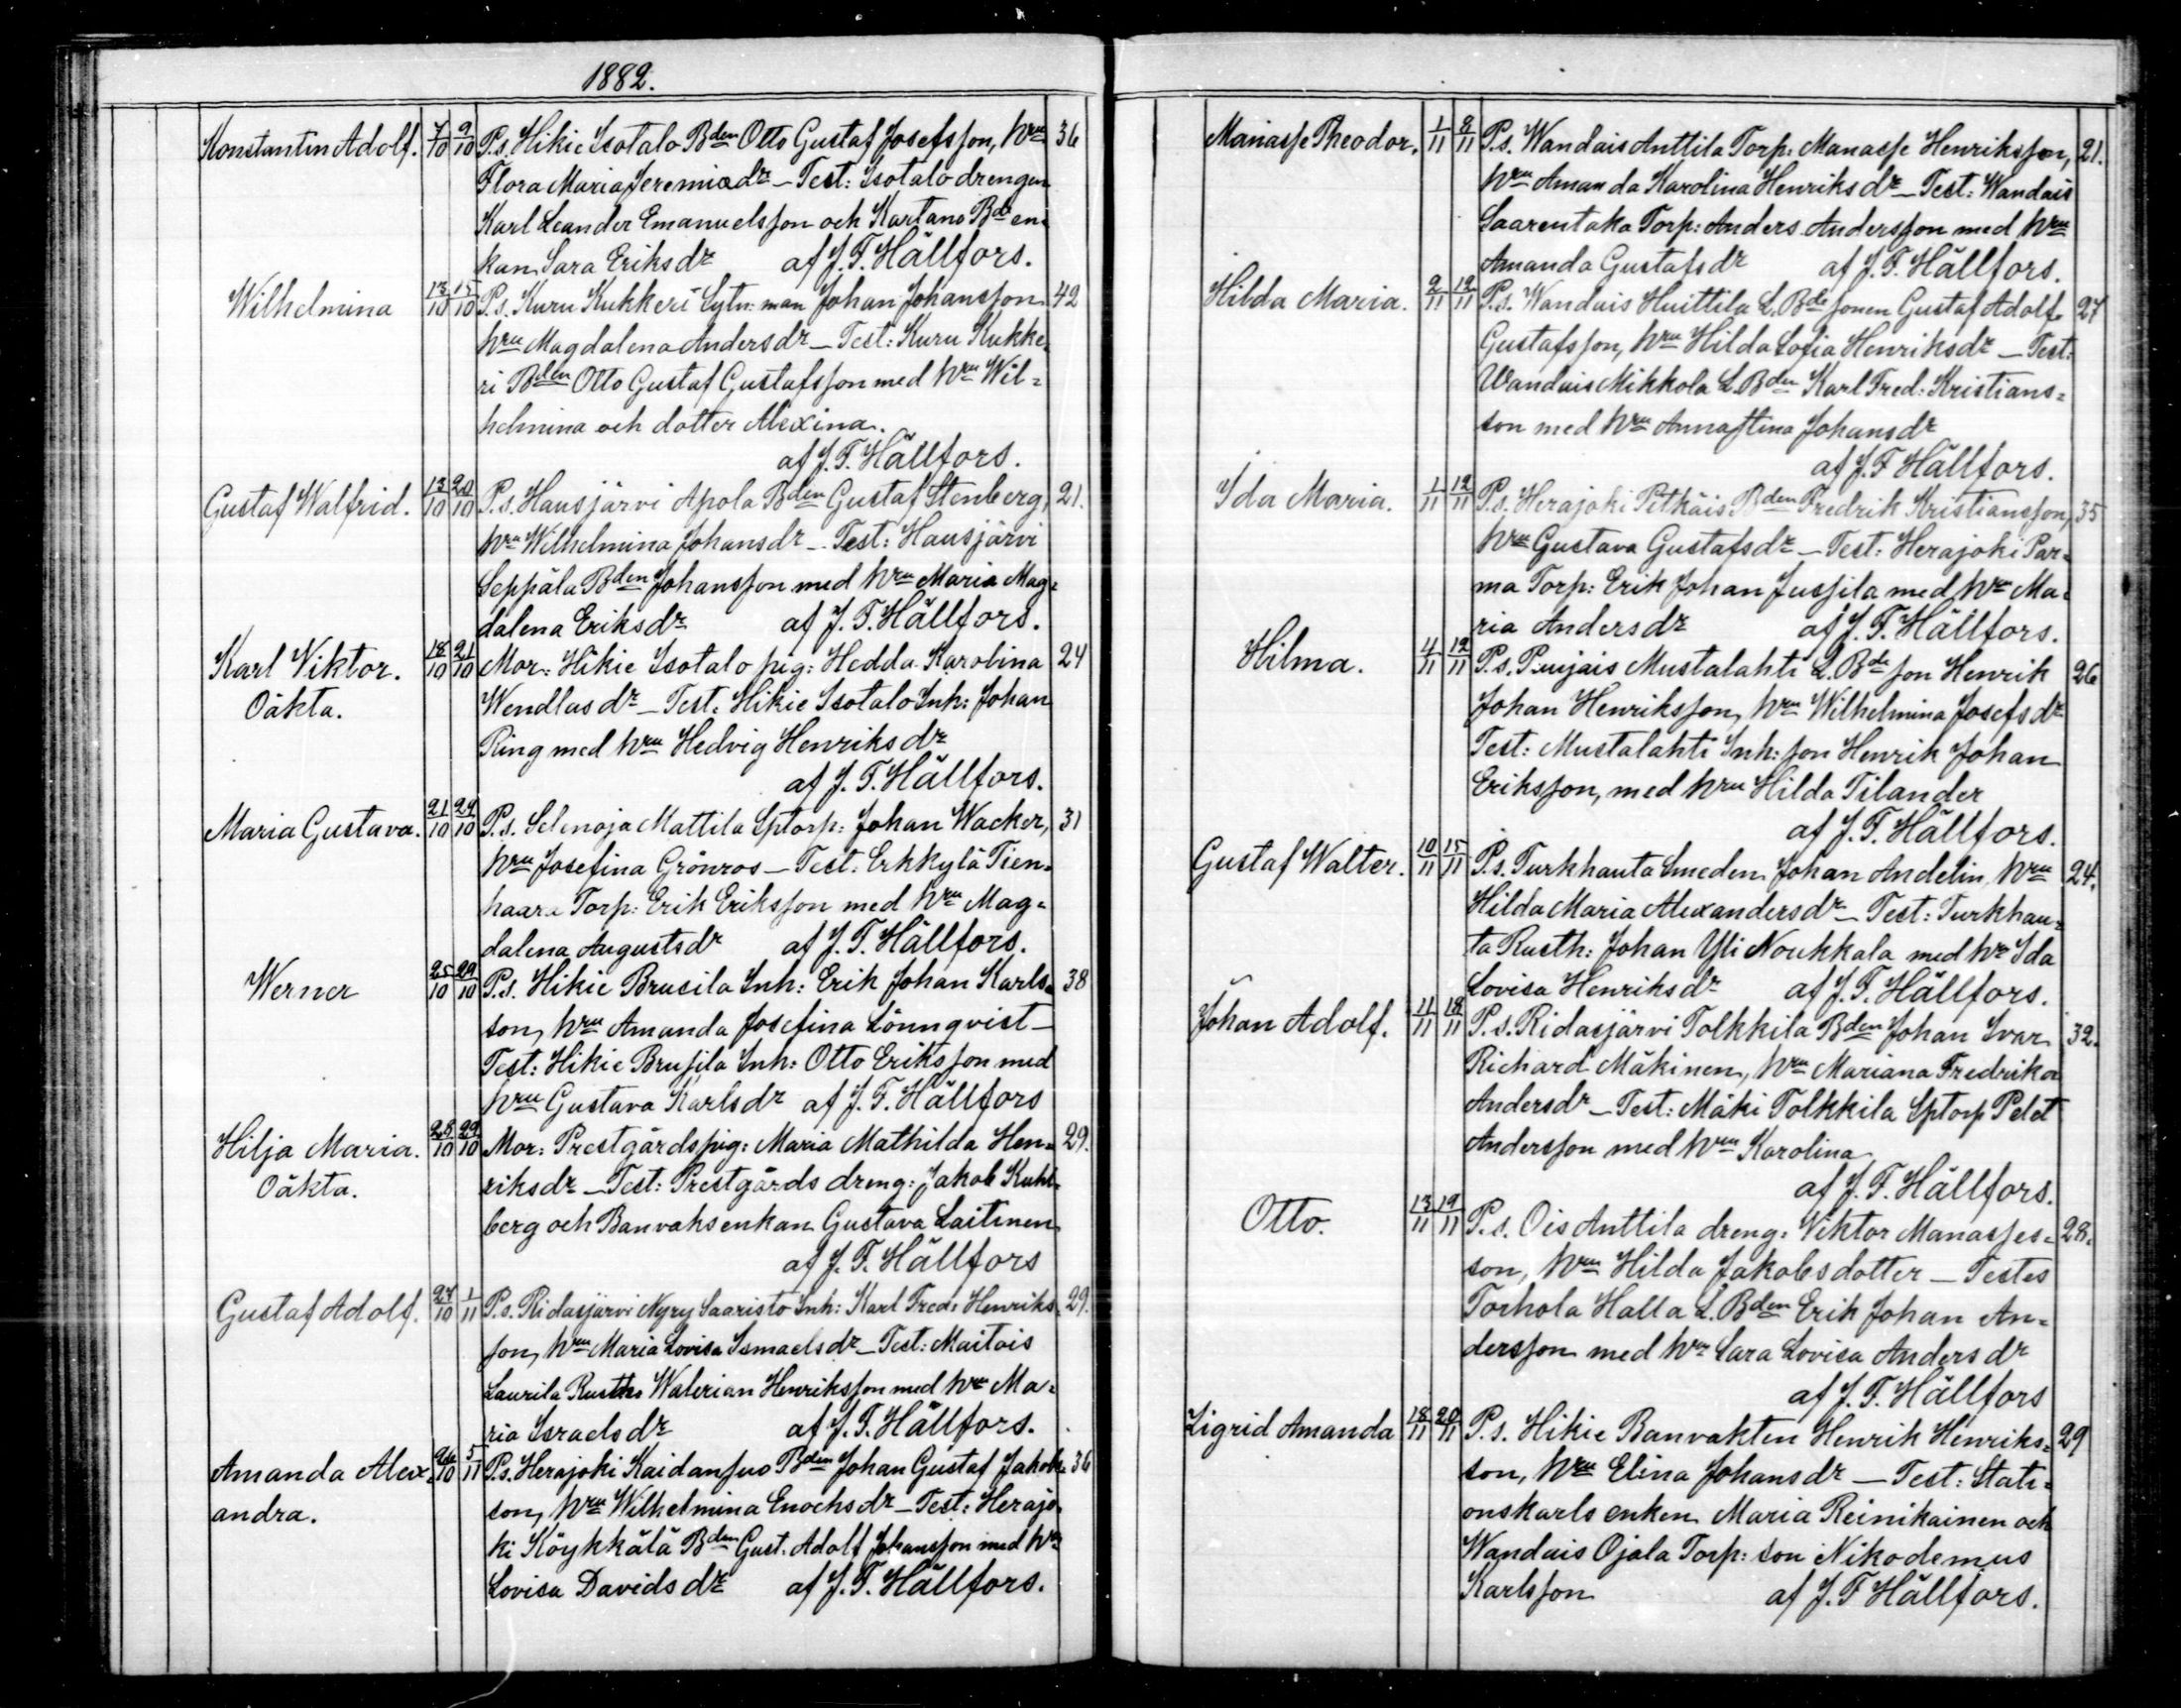 1882.
Konstantin Adolf. 7/10 9/10 P.s. Hikie Isotalo Bden Otto Gustaf Josefsson, hru 36
Flora Maria Jeremiædr – Test: Isotalo drengen
Karl Leander Emanuelsson och Kartano Bde en-
kan Sara Eriksdr af J. F. Hällfors.
Wilhelmina 13/10 15/10 P.s. Kuru Kukkeri Lytn: man Johan Johansson 42
hru Magdalena Andersdr – Test: Kuru Kukke-
ri Bden Otto Gustaf Gustafsson med hru Wil-
helmina och dotter Alexina.
af J. F. Hällfors.
Gustaf Walfrid. 13/10 20/10 P.s. Hausjärvi Apola Bden Gustaf Stenberg, 21.
hru Wilhelmina Johansdr – Test: Hausjärvi
Seppälä Bden Johansson med hru Maria Mag-
dalena Eriksdr af J. F. Hällfors.
Karl Viktor. 18/10 21/10 Mor: Hikie Isotalo pig: Hedda Karolina 24
Oäkta. Wendlasdr – Test: Hikie Isotalo Inh: Johan
Ring med hru Hedvig Henriksdr
af J. F. Hällfors.
Maria Gustava. 21/10 29/10 P.s. Selenoja Mattila Sptorp: Johan Wacker, 31
hru Josefina Grönros – Test: Erkkylä Tien-
haara Torp: Erik Eriksson med hru Mag-
dalena Augustsdr af J. F. Hällfors.
Werner 25/10 29/10 P.s. Hikie Brusila Inh: Erik Johan Karls- 38
son, hru Amanda Josefina Lönnqvist –
Test: Hikie Brusila Inh: Otto Eriksson med
hru Gustava Karlsdr af J. F. Hällfors
Hilja Maria. 28/10 29/10 Mor: Prestgårdspig: Maria Mathilda Hen- 29.
Oäkta. riksdr – Test: Prestgårds dreng: Jakob Kuhl-
berg och Banvaksenkan Gustava Laitinen
af J. F. Hällfors
Gustaf Adolf. 27/10 1/11 P.s. Ridasjärvi Nyry Saaristo Inh: Karl Fred: Henriks- 29.
son, hru Maria Lovisa Ismaelsdr – Test: Maitois
Laurila Rusth: Walerian Henriksson med hru Ma-
ria Israelsdr af J. F. Hällfors.
Amanda Alex- 26/10 5/11 P.s. Herajoki Kaidansuo Bden Johan Gustaf Jakob- 36
andra. son, hru Wilhelmina Enochsdr – Test: Herajo-
ki Köykkälä Bden Gust. Adolf Johansson med hru
Lovisa Davidsdr af J. F. Hällfors.
Manasse Theodor. 1/11 8/11 P.s. Wandais Anttila Torp: Manasse Henriksson, 21.
hru Amanda Karolina Henriksdr – Test: Wandais
Saarentaka Torp: Anders Andersson med hru
Amanda Gustafsdr af J. F. Hällfors.
Hilda Maria. 2/11 12/11 P.s. Wandais Huittila L. Bde sonen Gustaf Adolf 27
Gustafsson, hru Hilda Sofia Henriksdr – Test:
Wandais Mikkola L. Bden Karl Fred: Kristians-
son med hru Annastina Johansdr
af J. F Hällfors.
Ida Maria. 1/11 12/11 P.s. Herajoki Pitkäis Bden Fredrik Kristiansson, 35
hru Gustava Gustafsdr – Test: Herajoki Par-
ma Torp: Erik Johan Jussila med hru Ma-
ria Andersdr af J. F. Hällfors.
Hilma. 4/11 12/11 P.s. Pujais Mustalahti L. Bde son Henrik 26
Johan Henriksson, hru Wilhelmina Josefsdr
Test: Mustalahti Inh: son Henrik Johan
Eriksson, med hru Hilda Tilander
af J. F. Hällfors.
Gustaf Walter. 10/11 15/11 P.s. Turkhauta Smeden Johan Andelin, hru 24.
Hilda Maria Alexandersdr – Test: Turkhau-
ta Rusth: Johan Yli Noukkala med hr Ida
Lovisa Henriksdr af J. F. Hällfors.
Johan Adolf. 11/11 18/11 P.s. Ridasjärvi Tolkkila Bden Johan Ivar 32.
Richard Mäkinen, hru Mariana Fredrika
Andersdr – Test: Mäki Tolkkila Sptorp
Andersson med hru Karolina
af J. F. Hällfors.
Otto. 13/11 19/11 P.s. Ois Anttila dreng: Viktor Manasses- 28.
son, hru Hilda Jakobsdotter – Testes
Torhola Halla L. Bden Erik Johan An-
dersson med hru Sara Lovisa Andersdr
af J. F. Hällfors
Sigrid Amanda 18/11 20/11 P.s. Hikie Banvakten Henrik Henriks- 29
son, hru Elina Johansdr – Test: Stati-
onskarls enken Maria Reinikainen och
Wandais Ojala Torp: son Nikodemus
Karlsson af J. F Hällfors.